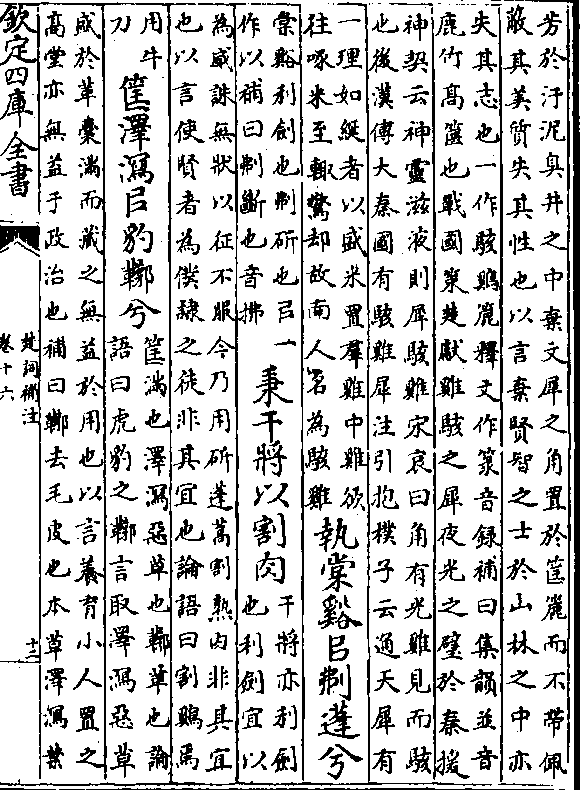 芳於汙泥臭井之中棄文犀之角置於筐簏而不帶佩
蔽其美質失其性也以言棄賢智之士於山林之中亦
失其志也一作駭鶏簏釋文作箓音録補曰集韻並音
鹿竹髙篋也戰國策楚獻雞駭之犀夜光之璧於秦援
神契云神靈滋液則犀駭雞宋衷曰角有光雞見而駭
也後漢傳大秦國有駭雞犀注引抱樸子云通天犀有
一理如綖者以盛米置羣雞中雞欲
往啄米至輒驚却故南人名為駭雞
執棠谿㠯刜蓬兮
棠谿利劍也刜斫也㠯一
作以補曰刜斷也音拂
秉干將以割肉
干將亦利劍
也利劍宜以
為威誅無狀以征不服今乃用斫蓬蒿割熟肉非其宜
也以言使賢者為僕隸之徒非其宜也論語曰割鶏焉
用牛
刀
筐澤瀉㠯豹鞹兮
筐滿也澤瀉惡草也鞹革也論
語曰虎豹之鞹言取澤瀉惡草
盛於革囊滿而藏之無益於用也以言養育小人置之
髙堂亦無益于政治也補曰鞹去毛皮也本草澤瀉葉
欽定四庫全書
楚詞補注
卷十六
十二